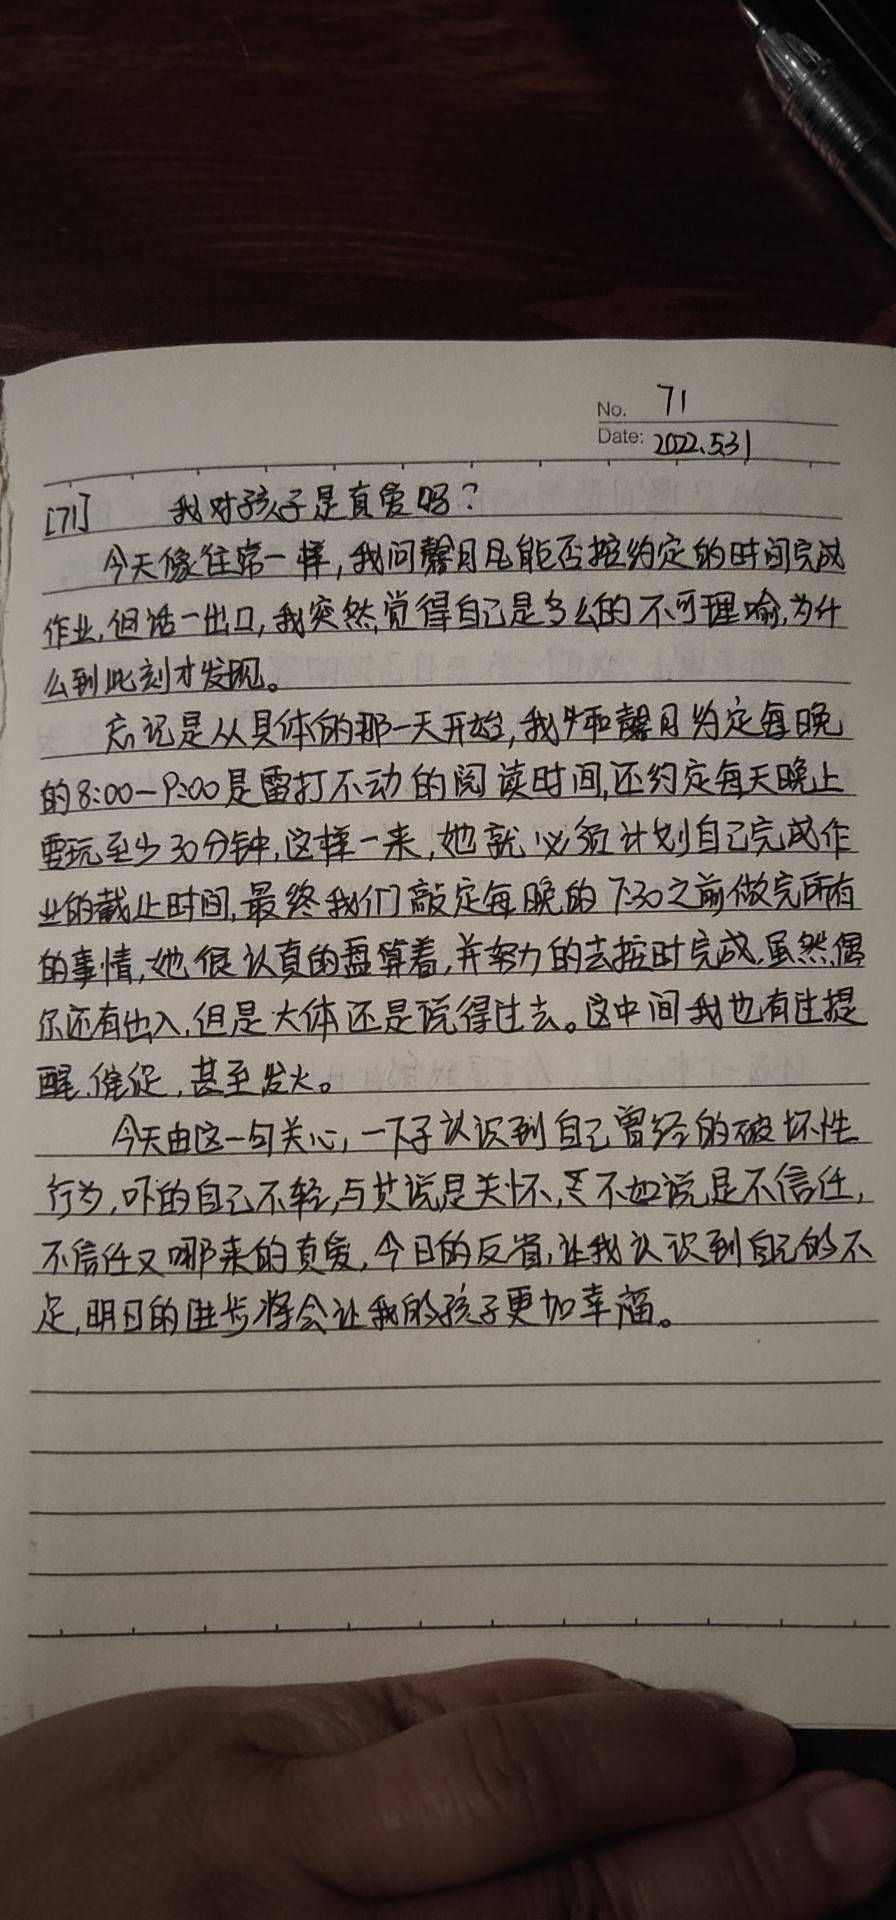 No. 71
Date: 2022.5.31
[71] 我对孩子是真爱吗?
今天像往常一样,我问馨月是能否按约定的时间完成
作业,但话一出口,我突然觉得自己是多么的不可理喻,为什
么到此刻才发现。
忘记是从具体的那一天开始,我和馨月约定每晚
的8:00-9:00是雷打不动的阅读时间,还约定每天晚上
要玩至少30分钟,这样一来,她就必须计划自己完成作
业的截止时间,最终我们敲定每晚的7:30之前做完所有
的事情,她很认真的盘算着,并努力的去按时完成,虽然偶
尔还有出入,但是大体还是说得过去。这中间我也有过提
醒、催促,甚至发火。
今天由这一句关心,一下子认识到自己曾经的破坏性
行为,吓的自己不轻,与其说是关怀,不如说是不信任,
不信任又哪来的真爱,今日的反省,让我认识到自己的不
足,明日的进步将会让我的孩子更加幸福。